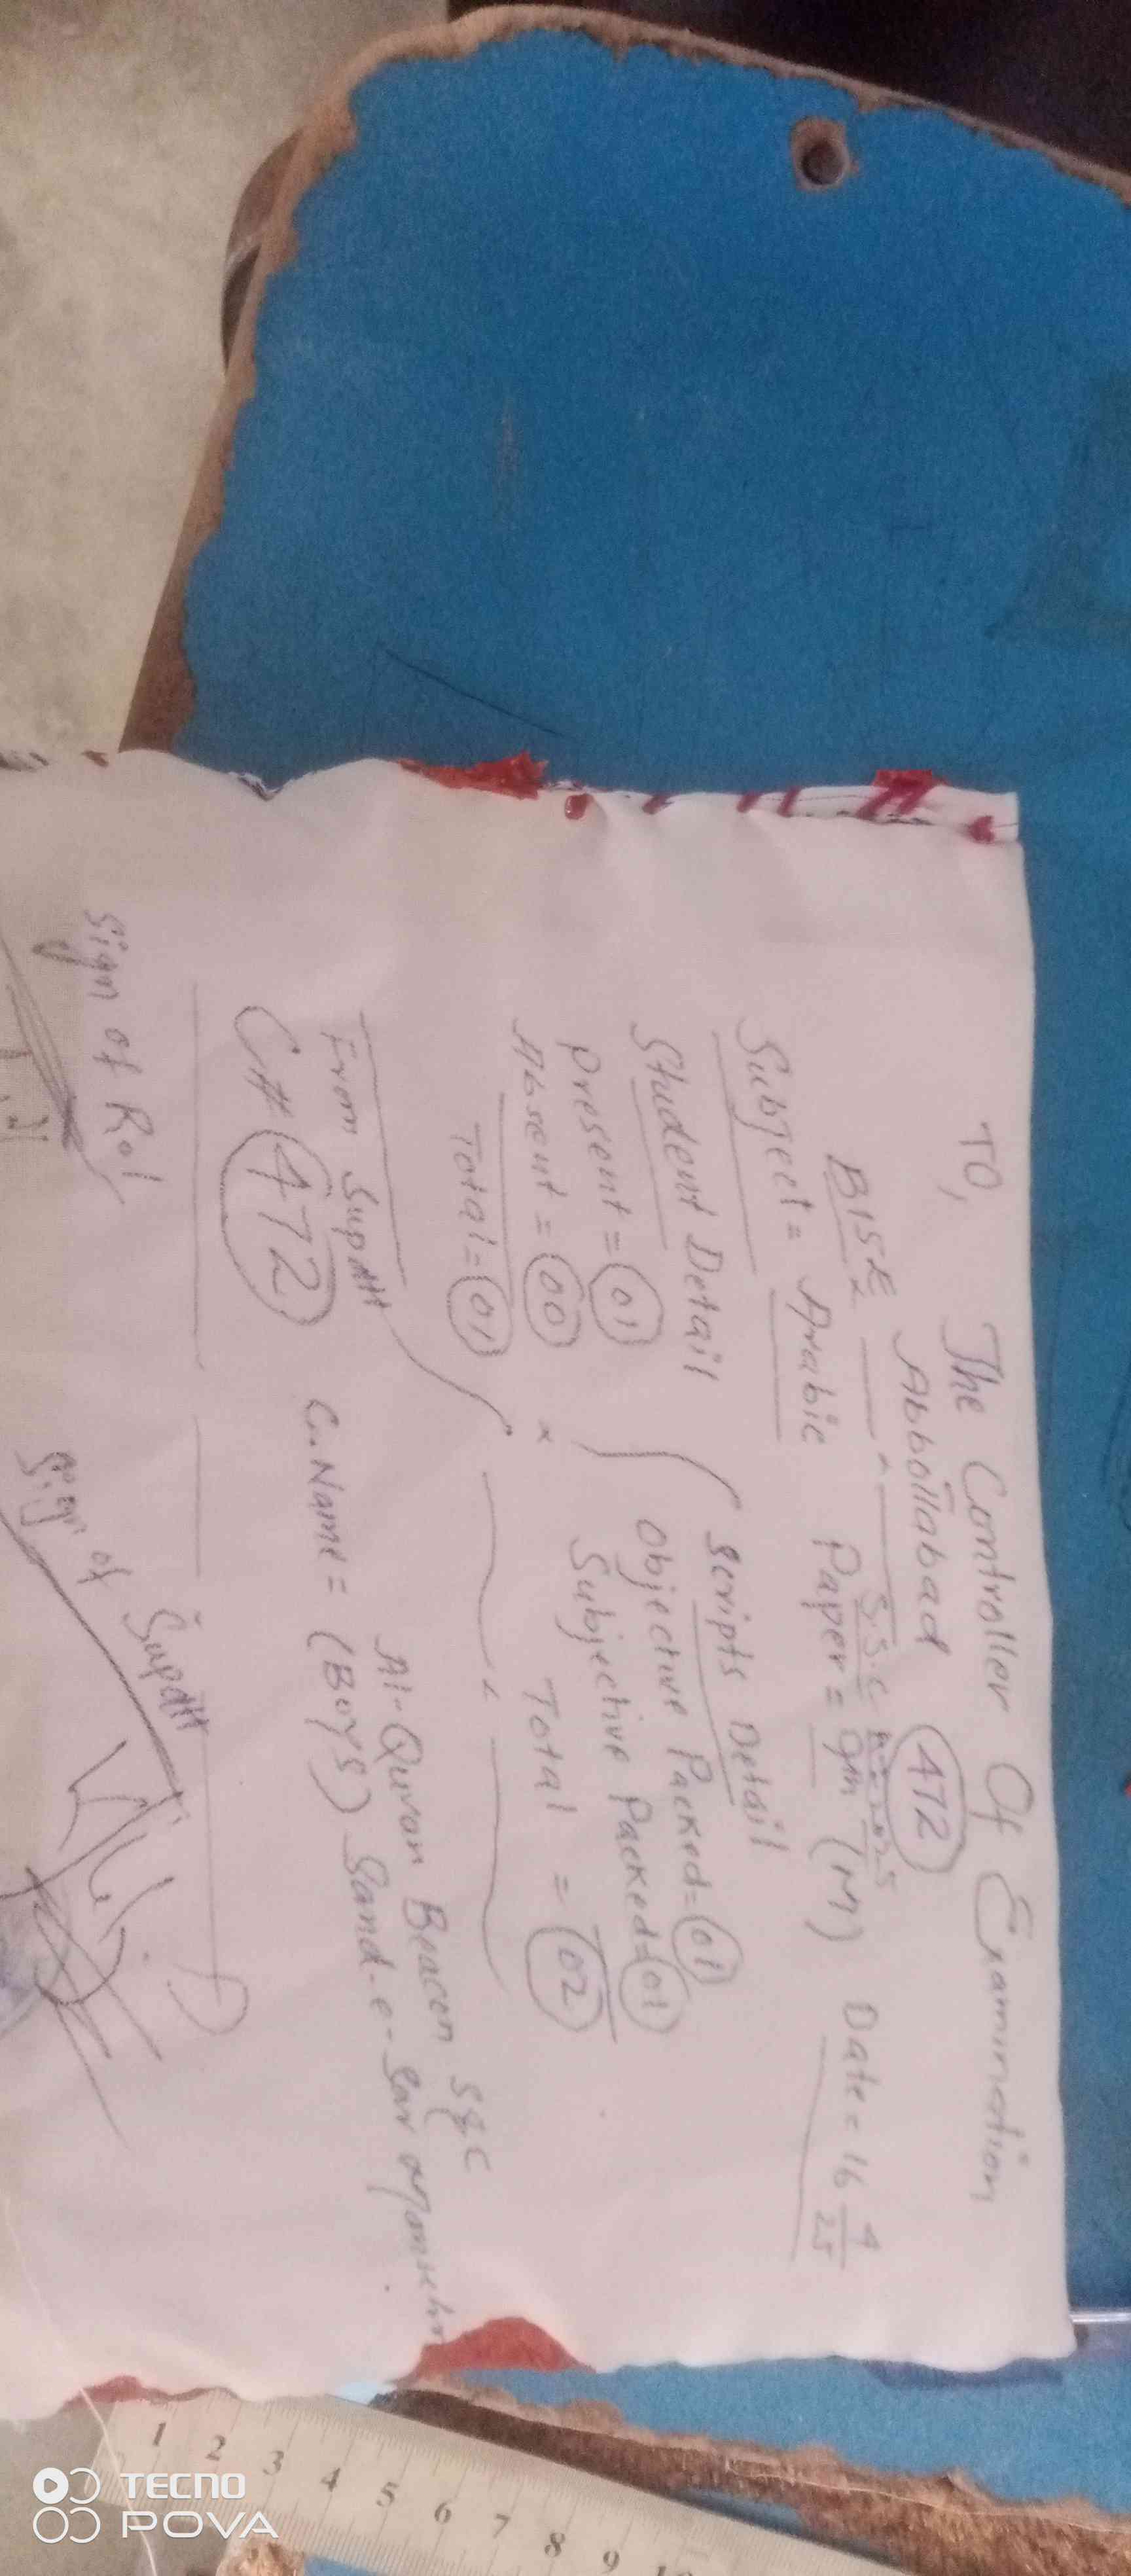 TO,
The Controller Of Examination
Abbottabad 472
BISE S.S.C
Subject = Arabic Paper = 9th (M) Date = 16 4/25
Student Detail
Present = 01
Absent = 00
Total = 01
Scripts Detail
Objective Packed = 01
Subjective Packed = 01
Total = 02
From Supdtt
C# 472
Al-Quran Beacon S&C
C.Name = (Boys)
Sign of R.I
Sign of Supdtt
1 2 3 4 5 6 7 8 9 10
TECNO
POVA